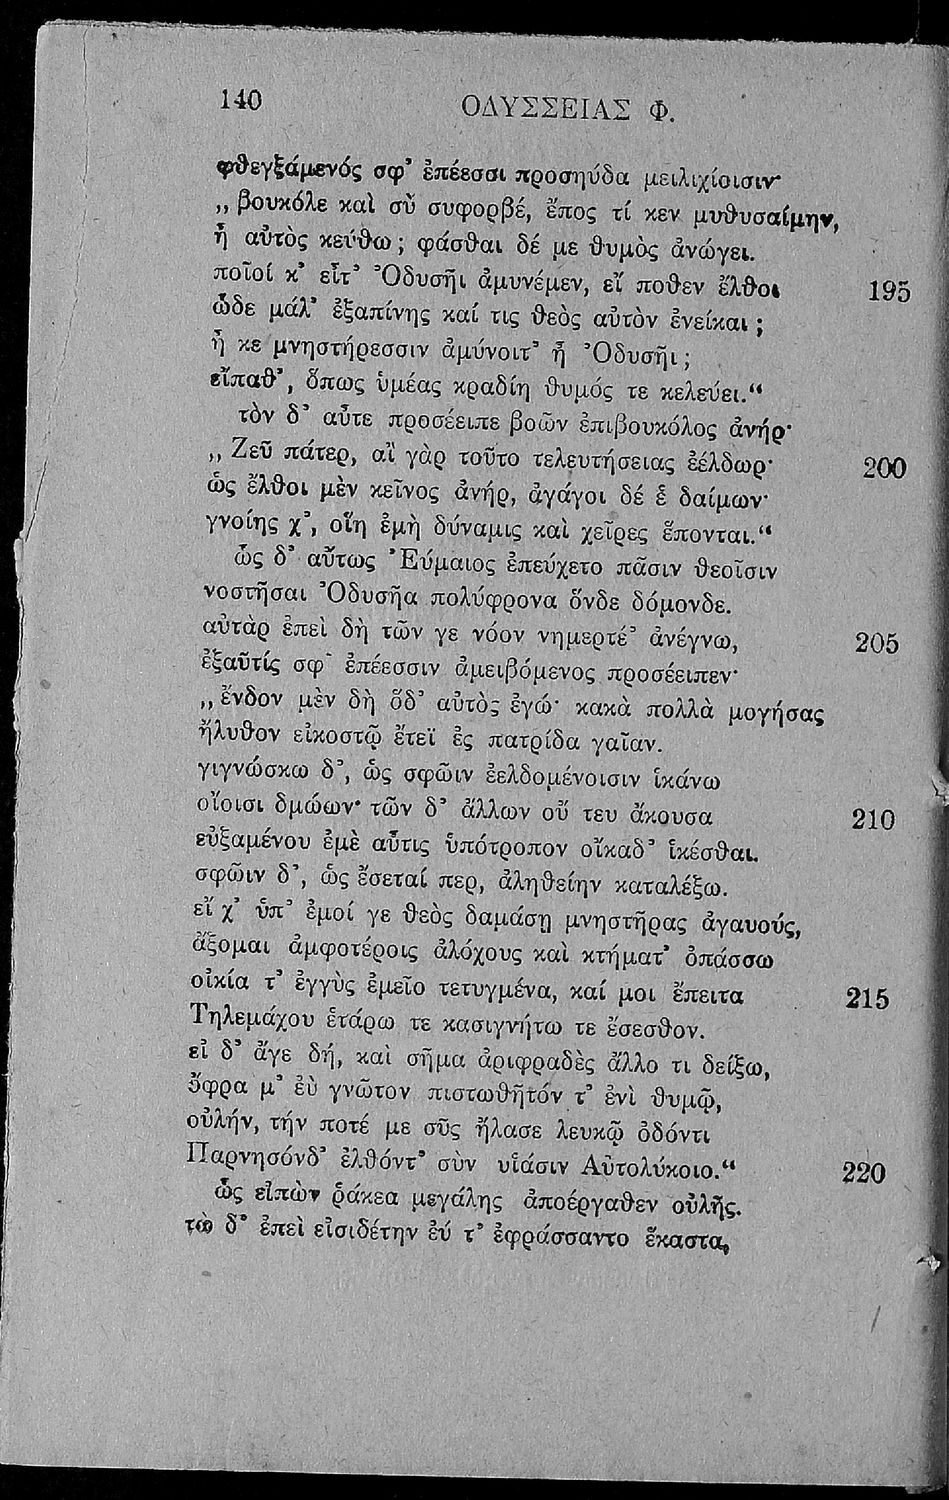 140 ΟΔΥΣΣΕΙΑΣ Φ.
φθεγξάμενός σφ’ ἐπέεσσι προσηύδα μειλιχίοισιν·
„ βουκόλε καὶ σὺ συφορβέ, ἔπος τί κεν μυθυσαίμην,
ἦ αὐτὸς κεύθω; φάσθαι δέ με θυμὸς ἀνώγει.
ποῖοί κ’ εἶτ’ Ὀδυσῆι ἀμυνέμεν, εἴ ποθεν ἔλθοι 195
ὧδε μάλ’ ἐξαπίνης καί τις θεὸς αὐτὸν ἐνείκαι;
ἦ κε μνηστήρεσσιν ἀμύνοιτ’ ἦ Ὀδυσῆι;
εἴπαθ’, ὅπως ὑμέας κραδίη θυμός τε κελεύει.“
τὸν δ’ αὖτε προσέειπε βοῶν ἐπιβουκόλος ἀνήρ·
„ Ζεῦ πάτερ, αἲ γὰρ τοῦτο τελευτήσειας ἐέλδωρ· 200
ὡς ἔλθοι μὲν κεῖνος ἀνήρ, ἀγάγοι δέ ἑ δαίμων·
γνοίης χ’, οἵη ἐμὴ δύναμις καὶ χεῖρες ἕπονται.“
ὣς δ’ αὔτως Ἐύμαιος ἐπεύχετο πᾶσιν θεοῖσιν
νοστῆσαι Ὀδυσῆα πολύφρονα ὅνδε δόμονδε.
αὐτὰρ ἐπεὶ δὴ τῶν γε νόον νημερτέ’ ἀνέγνω, 205
ἐξαῦτίς σφ’ ἐπέεσσιν ἀμειβόμενος προσέειπεν·
„ ἔνδον μὲν δὴ ὅδ’ αὐτὸς ἐγώ· κακὰ πολλὰ μογήσας
ἤλυθον εἰκοστῷ ἔτεϊ ἐς πατρίδα γαῖαν.
γιγνώσκω δ’, ὡς σφῶιν ἐελδομένοισιν ἱκάνω
οἴοισι δμώων· τῶν δ’ ἄλλων οὔ τευ ἄκουσα 210
εὐξαμένου ἐμὲ αὖτις ὑπότροπον οἴκαδ’ ἱκέσθαι.
σφῶιν δ’, ὡς ἔσεταί περ, ἀληθείην καταλέξω.
εἴ χ’ ὑπ’ ἐμοί γε θεὸς δαμάσῃ μνηστῆρας ἀγαυούς,
ἄξομαι ἀμφοτέροις ἀλόχους καὶ κτήματ’ ὀπάσσω
οἰκία τ’ ἐγγὺς ἐμεῖο τετυγμένα, καί μοι ἔπειτα 215
Τηλεμάχου ἑτάρω τε κασιγνήτω τε ἔσεσθον.
εἰ δ’ ἄγε δή, καὶ σῆμα ἀριφραδὲς ἄλλο τι δείξω,
ὄφρα μ’ ἐὺ γνῶτον πιστωθῆτόν τ’ ἐνὶ θυμῷ,
οὐλήν, τήν ποτέ με σῦς ἤλασε λευκῷ ὀδόντι
Παρνησόνδ’ ἐλθόντ’ σὺν υἱάσιν Αὐτολύκοιο.“ 220
ὣς εἰπὼν ῥάκεα μεγάλης ἀποέργαθεν οὐλῆς.
τὼ δ’ ἐπεὶ εἰσιδέτην ἐύ τ’ ἐφράσσαντο ἕκαστα,